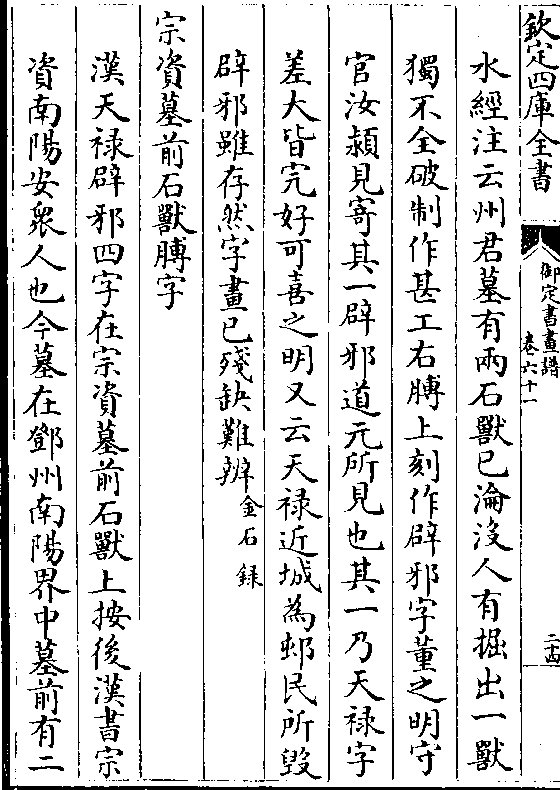 欽定四庫全書
御定書畫譜
卷六十一
二十四
水經注云州君墓有兩石獸已淪沒人有掘出一獸
獨不全破制作甚工右膊上刻作辟邪字董之明守
官汝潁見寄其一辟邪道元所見也其一乃天祿字
差大皆完好可喜之明又云天祿近城為邨民所毀
辟邪雖存然字畫已殘缺難辨金石錄
宗資墓前石獸膊字
漢天祿辟邪四字在宗資墓前石獸上按後漢書宗
資南陽安衆人也今墓在鄧州南陽界中墓前有二